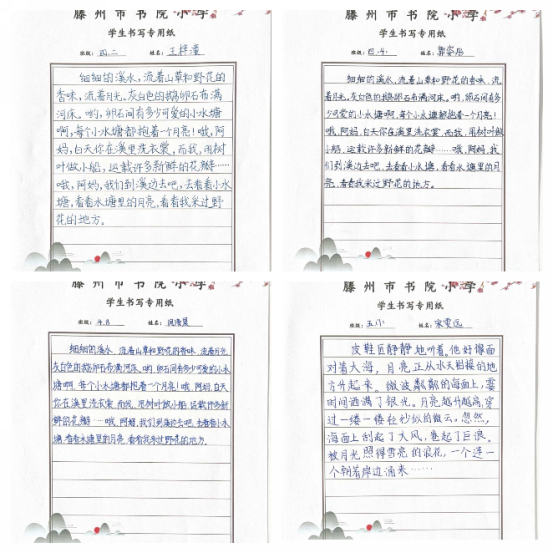 滕州市书院小学
学生书写专用纸
班级：四.二 姓名：王梓潼
细细的溪水，流着山草和野花的
香味，流着月光。灰白色的鹅卵石布满
河床。哟，卵石间有多少可爱的小水塘
啊，每个小水塘都抱着一个月亮！哦，阿
妈，白天你在溪里洗衣裳，而我，用树
叶做小船，运载许多新鲜的花瓣……
哦，阿妈，我们到溪边去吧，去看看小水
塘，看看水塘里的月亮，看看我采过野
花的地方。
滕州市书院小学
学生书写专用纸
班级：四.4. 姓名：
细细的溪水，流着山草和野花的香味，流
着月光。灰白色的鹅卵石布满河床。哟，卵石间有多
少可爱的小水塘啊，每个小水塘都抱着一个月亮！
哦，阿妈，白天你在溪里洗衣裳，而我，用树叶做
小船，运载许多新鲜的花瓣……哦，阿妈，我
们到溪边去吧，去看看小水塘，看看水塘里的月
亮，看看我采过野花的地方。
滕州市书院小学
学生书写专用纸
班级：4.8 姓名：
细细的溪水，流着山草和野花的香味，流着月光。
灰白色的鹅卵石布满河床。哟，卵石间有多少可爱的小水
塘啊，每个小水塘都抱着一个月亮！哦，阿妈，白天
你在溪里洗衣裳，而我，用树叶做小船，运载许多新
鲜的花瓣……哦，阿妈，我们到溪边去吧，去看看小水
塘，看看水塘里的月亮，看看我采过野花的地方。
滕州市书院小学
学生书写专用纸
班级：五 姓名：宋雯远
皮鞋匠静静地听着。他好像面
对着大海，月亮正从水天相接的地
方升起来。微波粼粼的海面上，霎
时间洒满了银光。月亮越升越高，穿
过一缕一缕轻纱似的微云。忽然，
海面上刮起了大风，卷起了巨浪。
被月光照得雪亮的浪花，一个连一
个朝着岸边涌来……